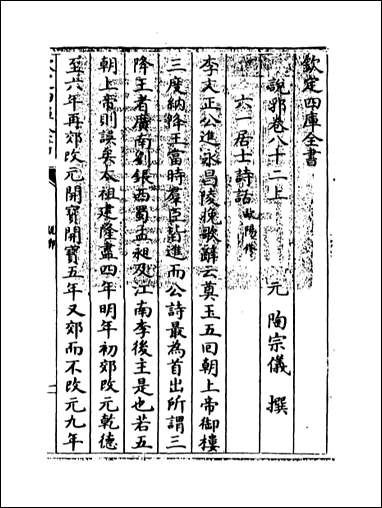 欽定四庫全書
說郛卷八十二上
元 陶宗儀 撰
六一居士詩話 歐陽修
李文正公進永昌陵挽歌辭云奠玉五回朝上帝御樓
三度納降王當時羣臣皆進而公詩最為首出所謂三
降王者廣南劉鋹西蜀孟昶及江南李後主是也若五
朝上帝則誤矣太祖建隆盡四年明年初郊改元乾德
至六年再郊改元開寶開寶五年又郊而不改元九年
說郛